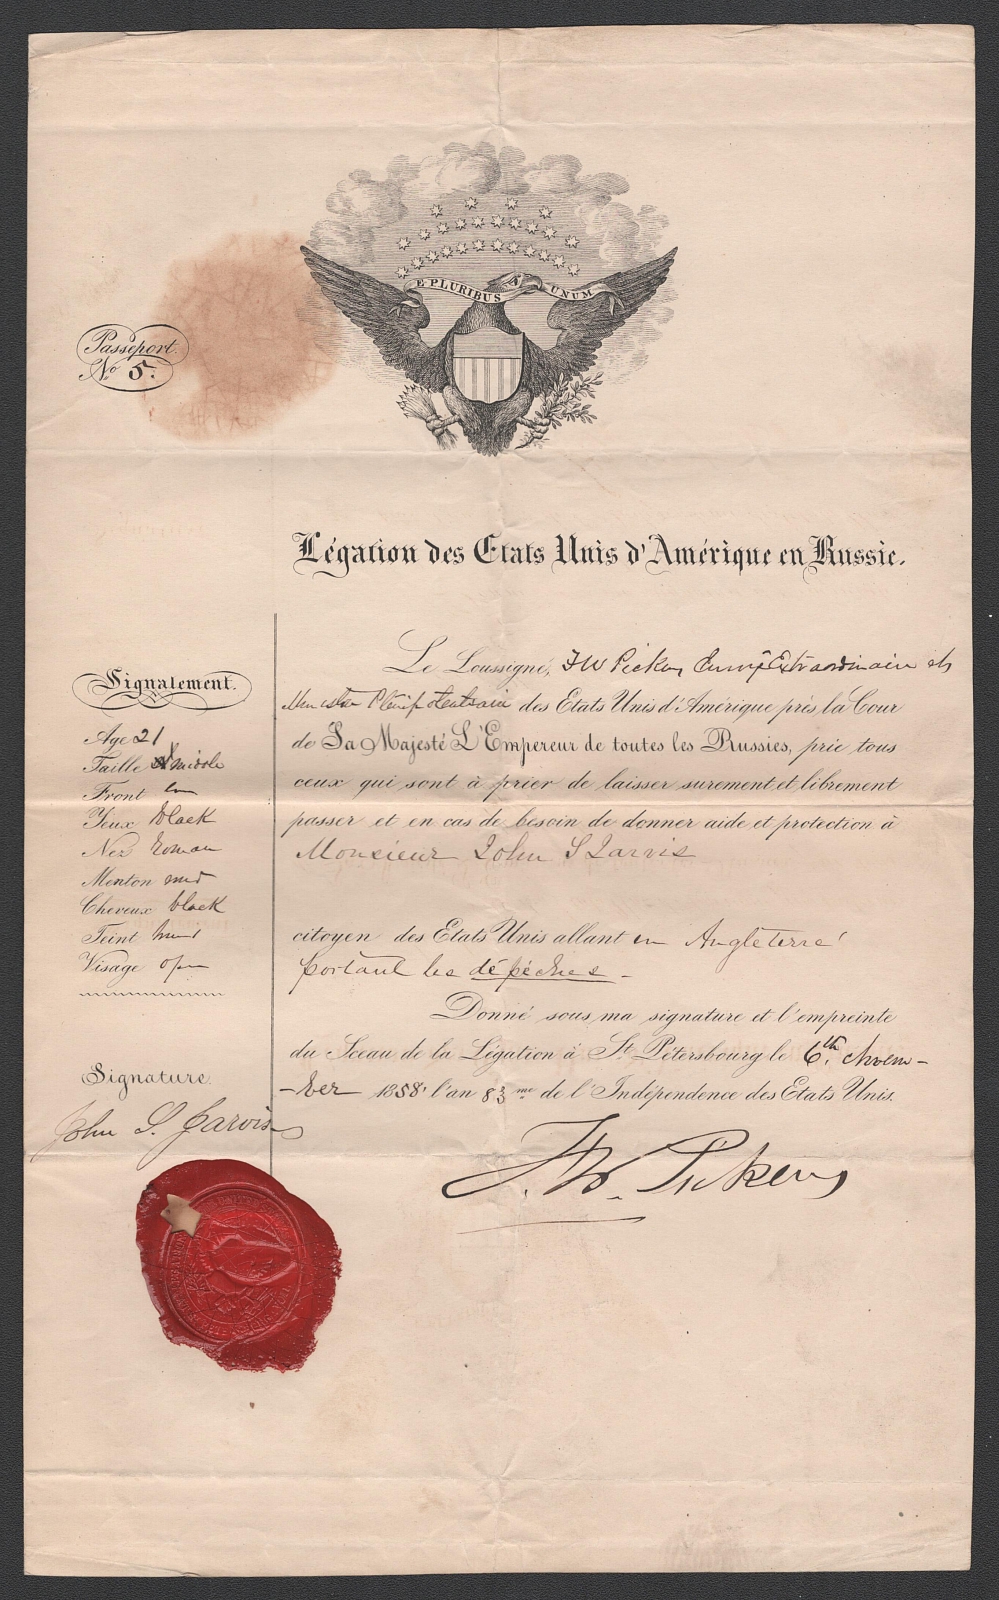 E PLURIBUS UNUM
Passeport.
No 5.
Légation des Etats Unis d'Amérique en Russie.
Le Soussigné, F W Pickens Envoyé Extraordinaire et
Ministre Plenipotentiaire des Etats Unis d'Amérique près la Cour
de Sa Majesté L'Empereur de toutes les Russies, prie tous
ceux qui sont à prier de laisser surement et librement
passer et en cas de besoin de donner aide et protection à
Monsieur John S Jarvis
citoyen des Etats Unis allant en Angleterre
portant les dépéches -
Donné sous ma signature et l'empreinte
du Sceau de la Légation à St. Pétersbourg le 6th. Novem-
-ber 1858 l'an 83 me de l'Indépendence des Etats Unis.
F. W. Pickens
Signalement.
Age 21
Taille middle
Front
Yeux black
Nez Roman
Menton mid
Cheveux black
Teint
Visage open
Signature.
John S. Jarvis